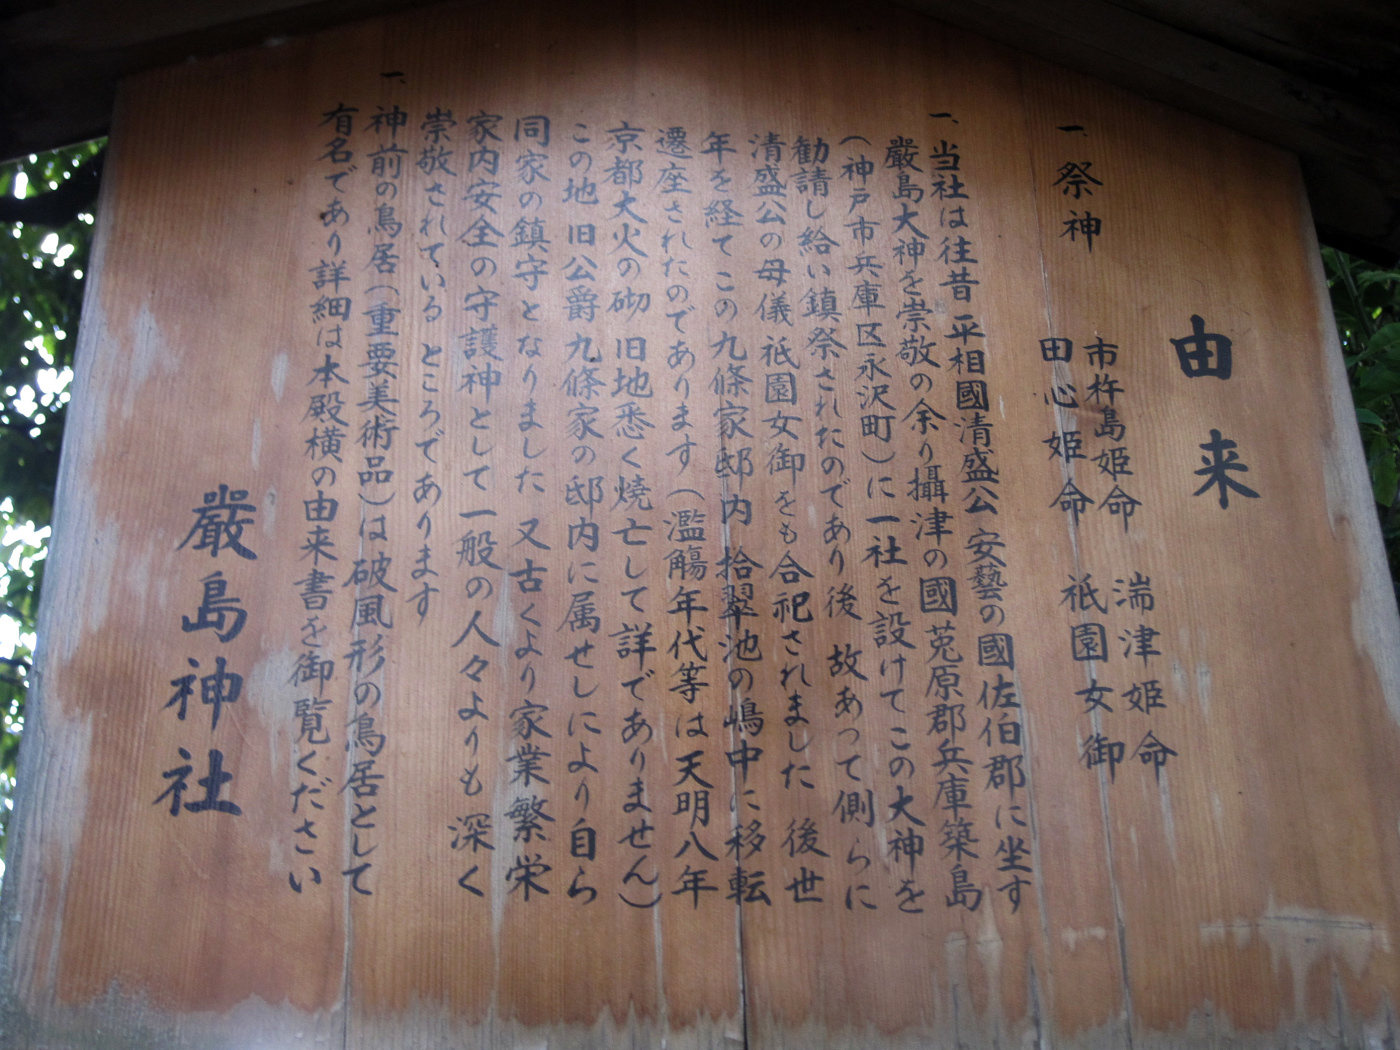 由来
一、祭神
市杵島姫命 湍津姫命
田心姫命 祇園女御
一、当社は往昔平相國清盛公安藝の國佐伯郡に坐す
嚴島大神を崇敬の余り攝津の國菟原郡兵庫築島
(神戸市兵庫区永沢町)に一社を設けてこの大神を
勧請し給い鎮祭されたのであり後 故あって側らに
清盛公の母儀祇園女御をも合祀されました 後世
年を経てこの九條家邸内拾翠池の嶋中に移転
遷座されたのであります(濫觴年代等は天明八年
京都大火の砌 旧地悉く燒亡して詳でありません)
この地旧公爵九條家の邸内に属せしにより自ら
同家の鎮守となりました 又古くより家業繁栄
家内安全の守護神として一般の人々よりも深く
崇敬されている ところであります
一、神前の鳥居(重要美術品)は破風形の鳥居として
有名であり詳細は本殿横の由来書を御覧ください
嚴島神社